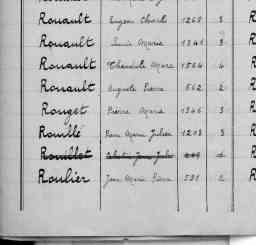 Rouault Eugène Charle 1268 3
Rouault Louis Marie 1341 3
Rouault 1504 4
Rouault Auguste Pierre 562 2
Rouget Pierre Marie 1346 3
Rouillé Marie Julien 1213 3
Rouillot
Roulier Jean Marie Pierre 591 2